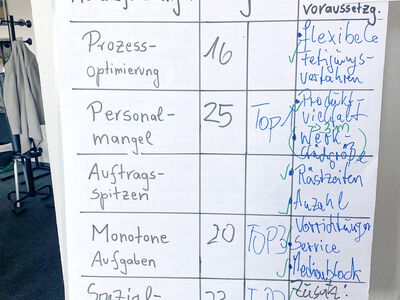 voraussetzg.
Prozess-
optimierung
16
Flexibele
Fertigungs-
verfahren
Personal-
mangel
25
TOP1
Produkt
vielfalt
>3m
(Werk-
stückgröße)
Auftrags-
spitzen
Rüstzeiten
Anzahl
Monotone
Aufgaben
20
TOP3
Vorrichtungen
Service
Medienblock
Spezial-
23
Zusätzl.